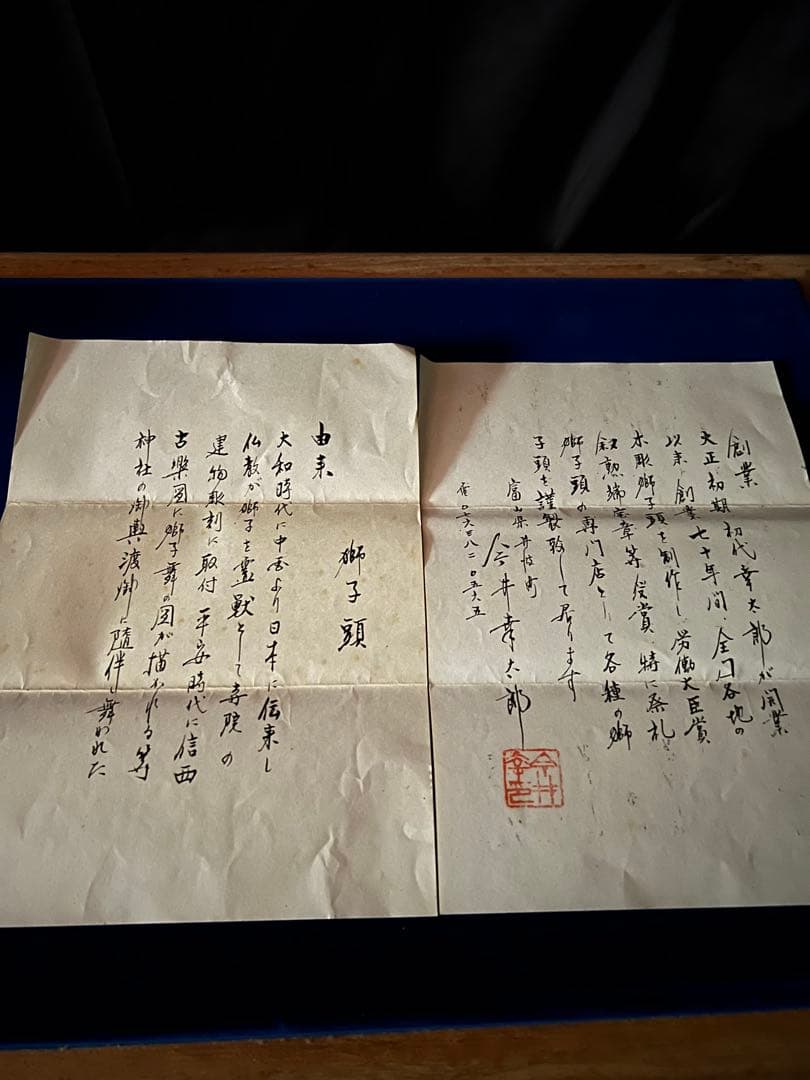 創業
大正初期初代幸太郎が開業
以来創業七十年間、全国各地の
木彫獅子頭を制作し労働大臣賞
叙勲瑞宝章等受賞 特に祭礼
獅子頭の専門店として各種の獅
子頭を謹製致して居ります
富山県井波町
今井幸太郎
由来 獅子頭
大和時代に中国より日本に伝来し
仏教が獅子を霊獣として寺院の
建物彫刻に取付 平安時代に信西
古楽図に獅子舞の図が描かれる等
神社の御輿渡御に随伴し舞われた